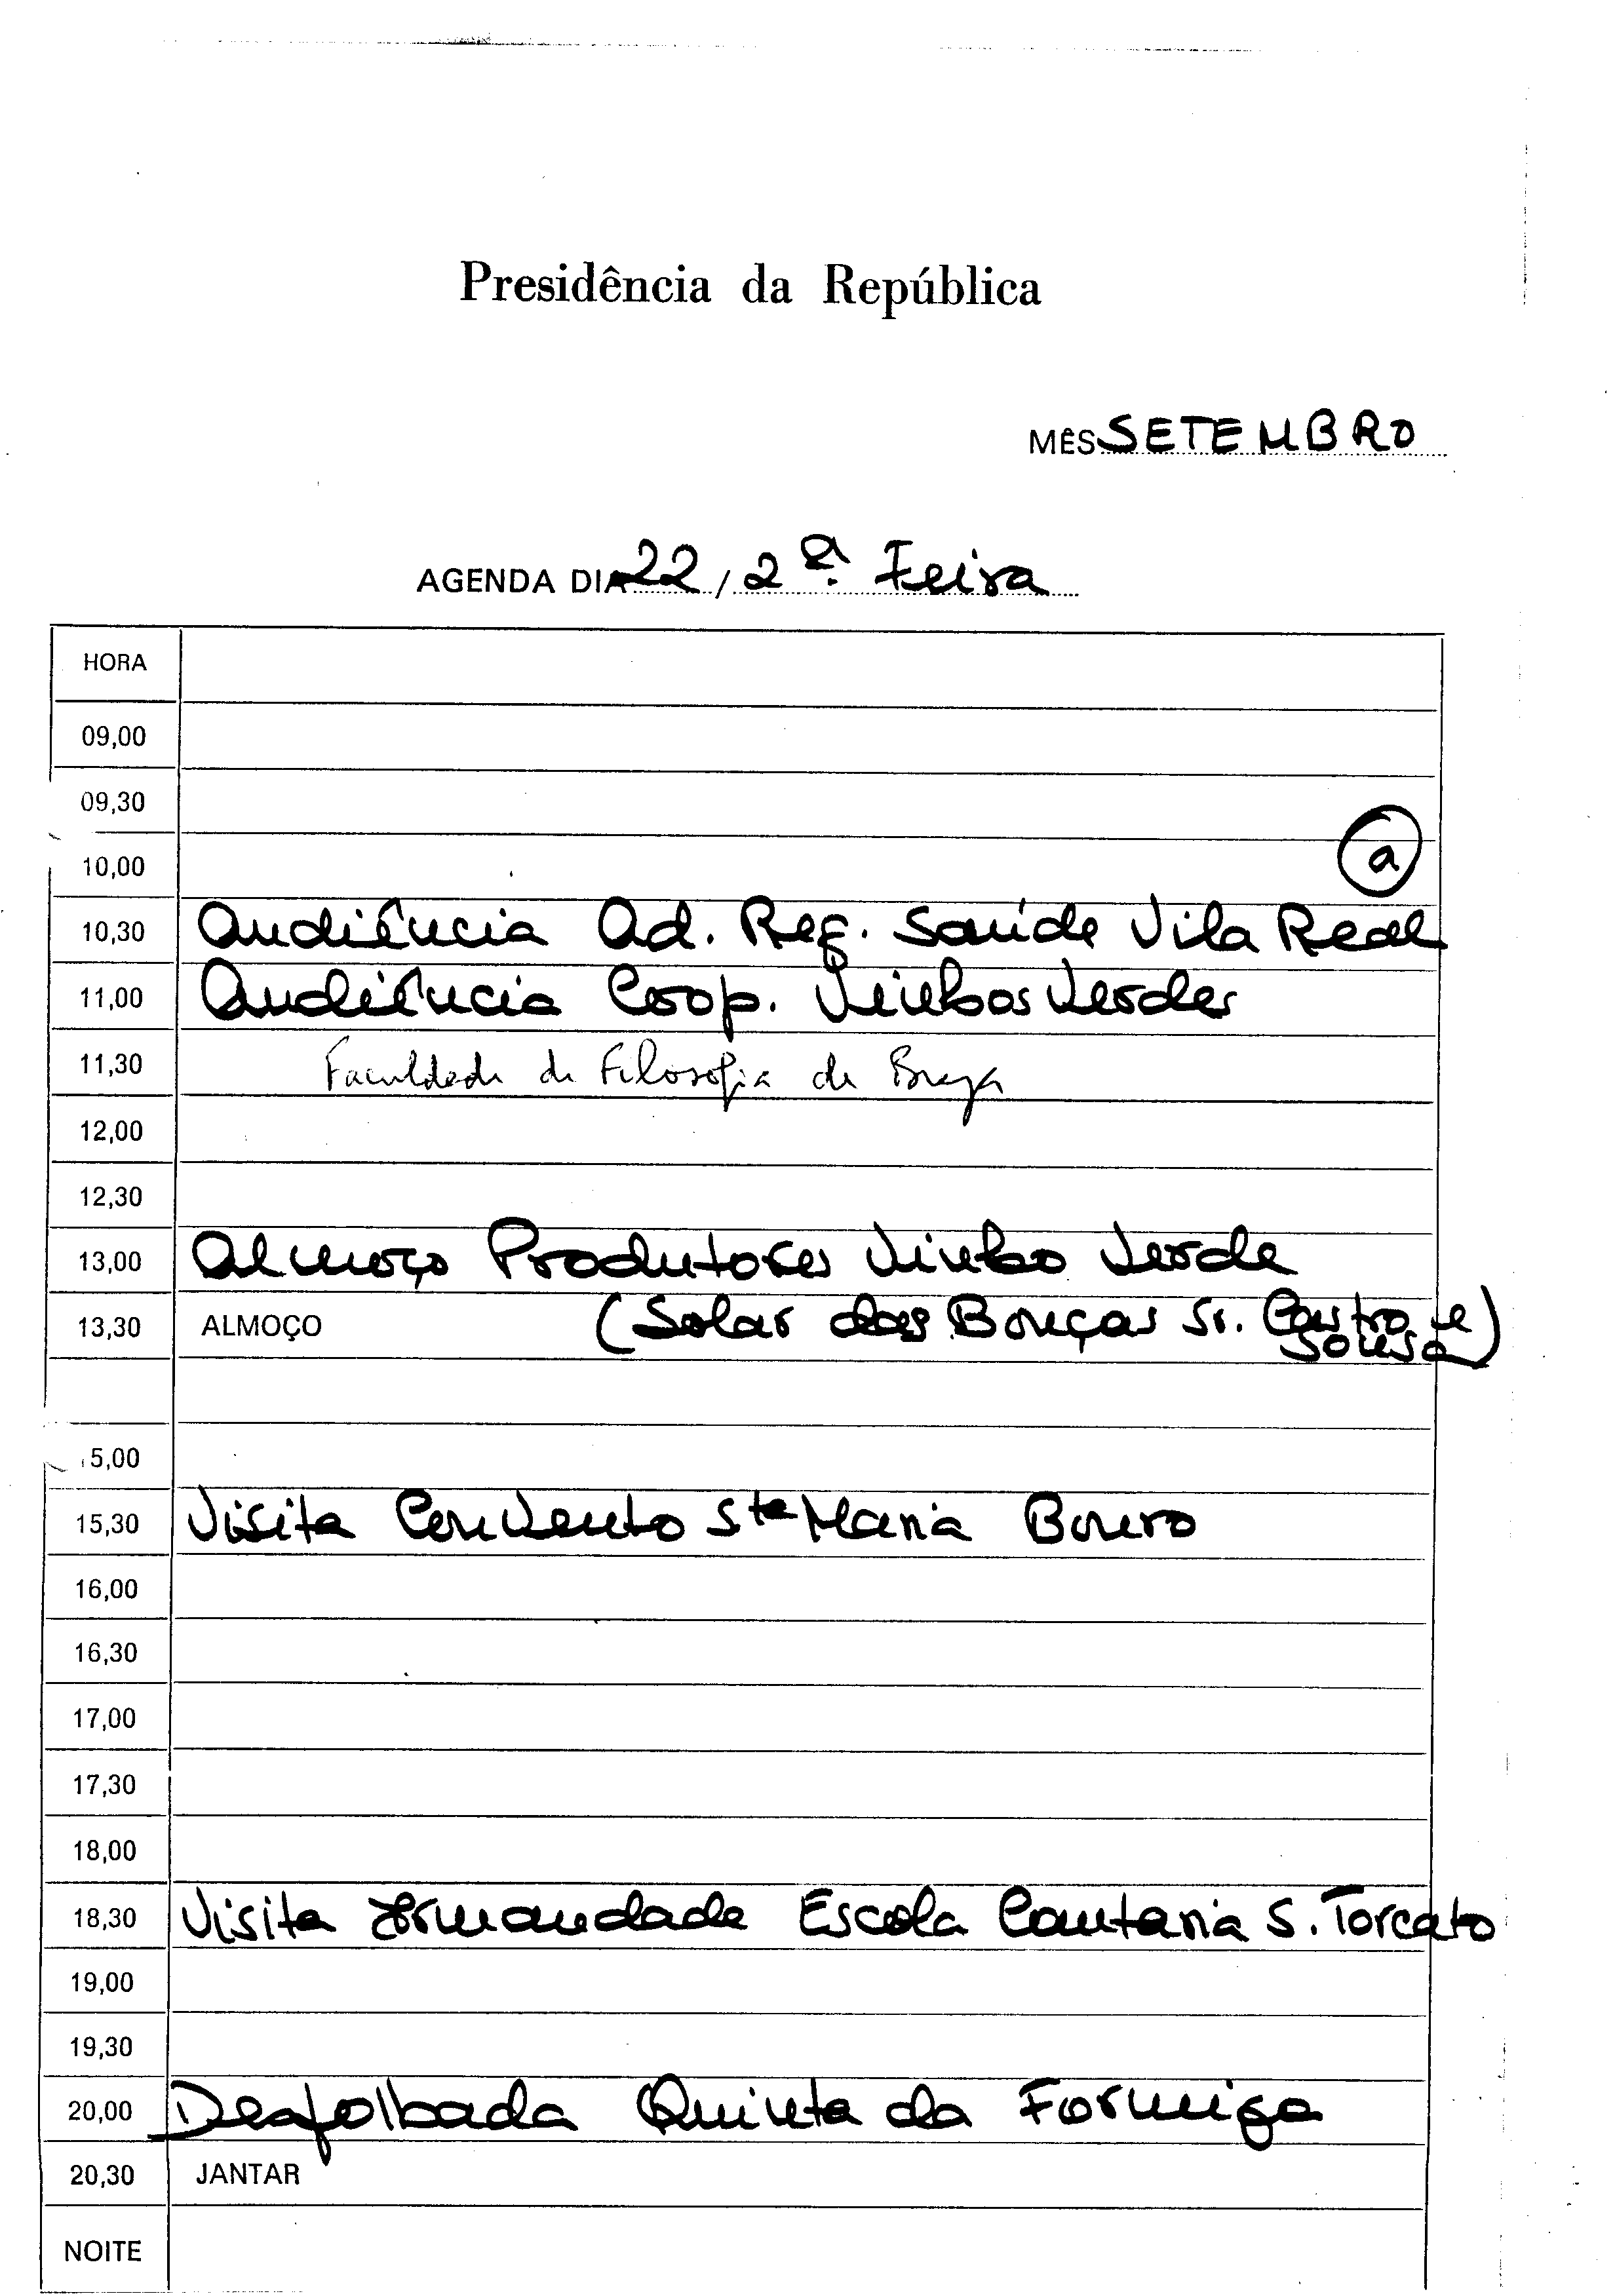 Presidência da República
MÊS SETEMBRO
AGENDA DIA 22 / 2ª Feira
HORA
09,00
09,30
10,00 a
10,30 Audiência Ad. Reg. Saúde Vila Real
11,00 Audiência Coop. Vinhos Verdes
11,30 Faculdade de Filosofia de Braga
12,00
12,30
13,00 Almoço Produtores Vinho Verde
13,30 ALMOÇO (Solar das Bouças Sr. Castro e Sousa)
15,00
15,30 Visita Convento Sta Maria Bouro
16,00
16,30
17,00
17,30
18,00
18,30 Visita Irmandade Escola Cantaria S. Torcato
19,00
19,30
20,00 Desfolhada Quinta da Formiga
20,30 JANTAR
NOITE